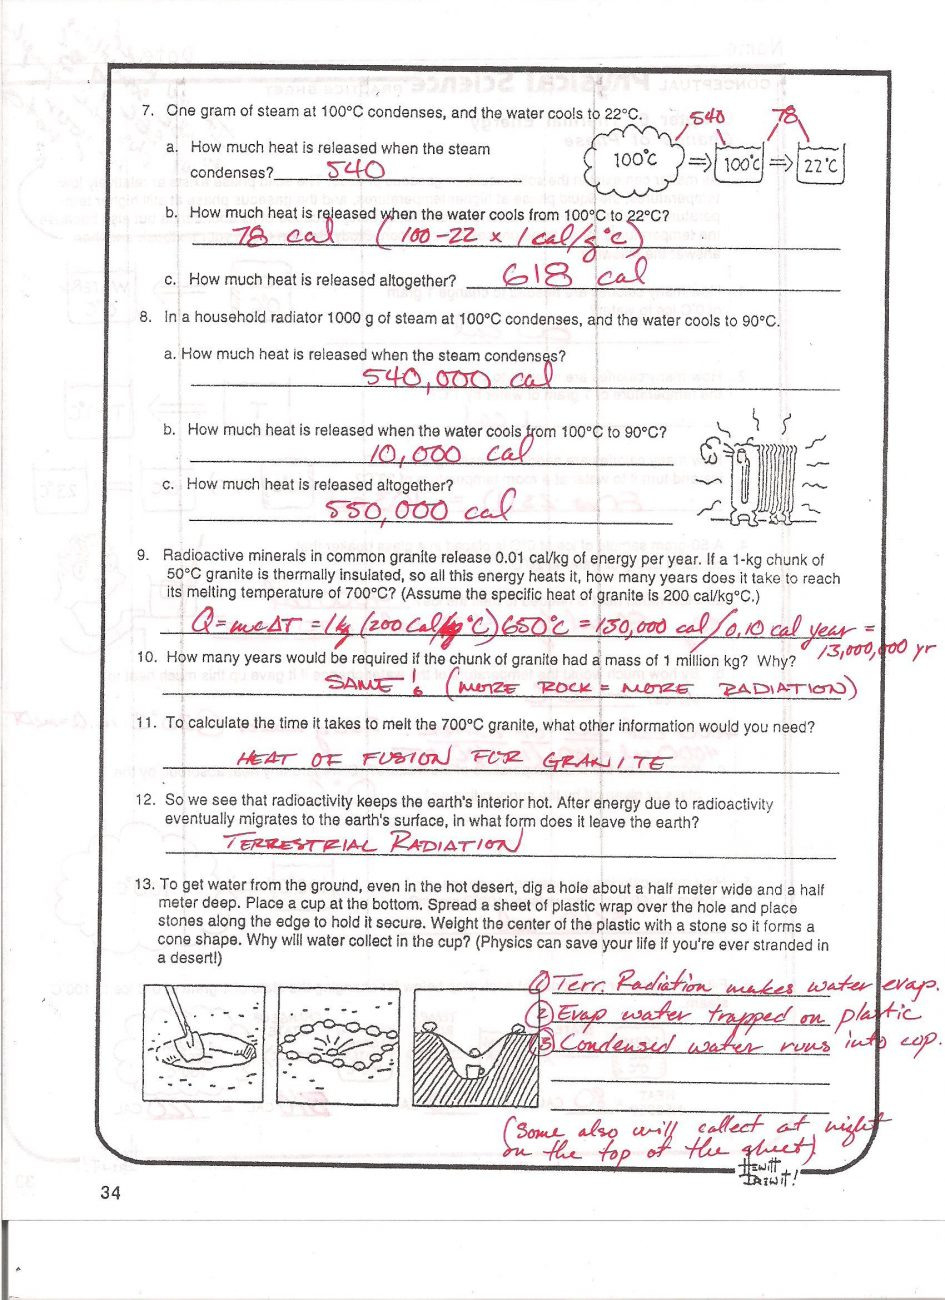 7. One gram of steam at 100°C condenses, and the water cools to 22°C.
540 78
100°C ⇒ 100°C ⇒ 22°C
a. How much heat is released when the steam
condenses? 540
b. How much heat is released when the water cools from 100°C to 22°C?
78 cal (100-22 x 1 cal/g °C)
c. How much heat is released altogether? 618 cal
8. In a household radiator 1000 g of steam at 100°C condenses, and the water cools to 90°C.
a. How much heat is released when the steam condenses?
540,000 cal
b. How much heat is released when the water cools from 100°C to 90°C?
10,000 cal
c. How much heat is released altogether?
550,000 cal
9. Radioactive minerals in common granite release 0.01 cal/kg of energy per year. If a 1-kg chunk of
50°C granite is thermally insulated, so all this energy heats it, how many years does it take to reach
its melting temperature of 700°C? (Assume the specific heat of granite is 200 cal/kg°C.)
Q = mcΔT = 1kg (200 cal/kg °C) 650°C = 130,000 cal/0.10 cal year =
13,000,000 yr
10. How many years would be required if the chunk of granite had a mass of 1 million kg? Why?
SAME! (MORE ROCK = MORE RADIATION)
11. To calculate the time it takes to melt the 700°C granite, what other information would you need?
HEAT OF FUSION FOR GRANITE
12. So we see that radioactivity keeps the earth's interior hot. After energy due to radioactivity
eventually migrates to the earth's surface, in what form does it leave the earth?
TERRESTRIAL RADIATION
13. To get water from the ground, even in the hot desert, dig a hole about a half meter wide and a half
meter deep. Place a cup at the bottom. Spread a sheet of plastic wrap over the hole and place
stones along the edge to hold it secure. Weight the center of the plastic with a stone so it forms a
cone shape. Why will water collect in the cup? (Physics can save your life if you're ever stranded in
a desert!)
① Terr. Radiation makes water evap.
② Evap water trapped on plastic
③ Condensed water runs into cup.
(Some also will collect at night
on the top of the sheet)
Hewitt
Drewit!
34